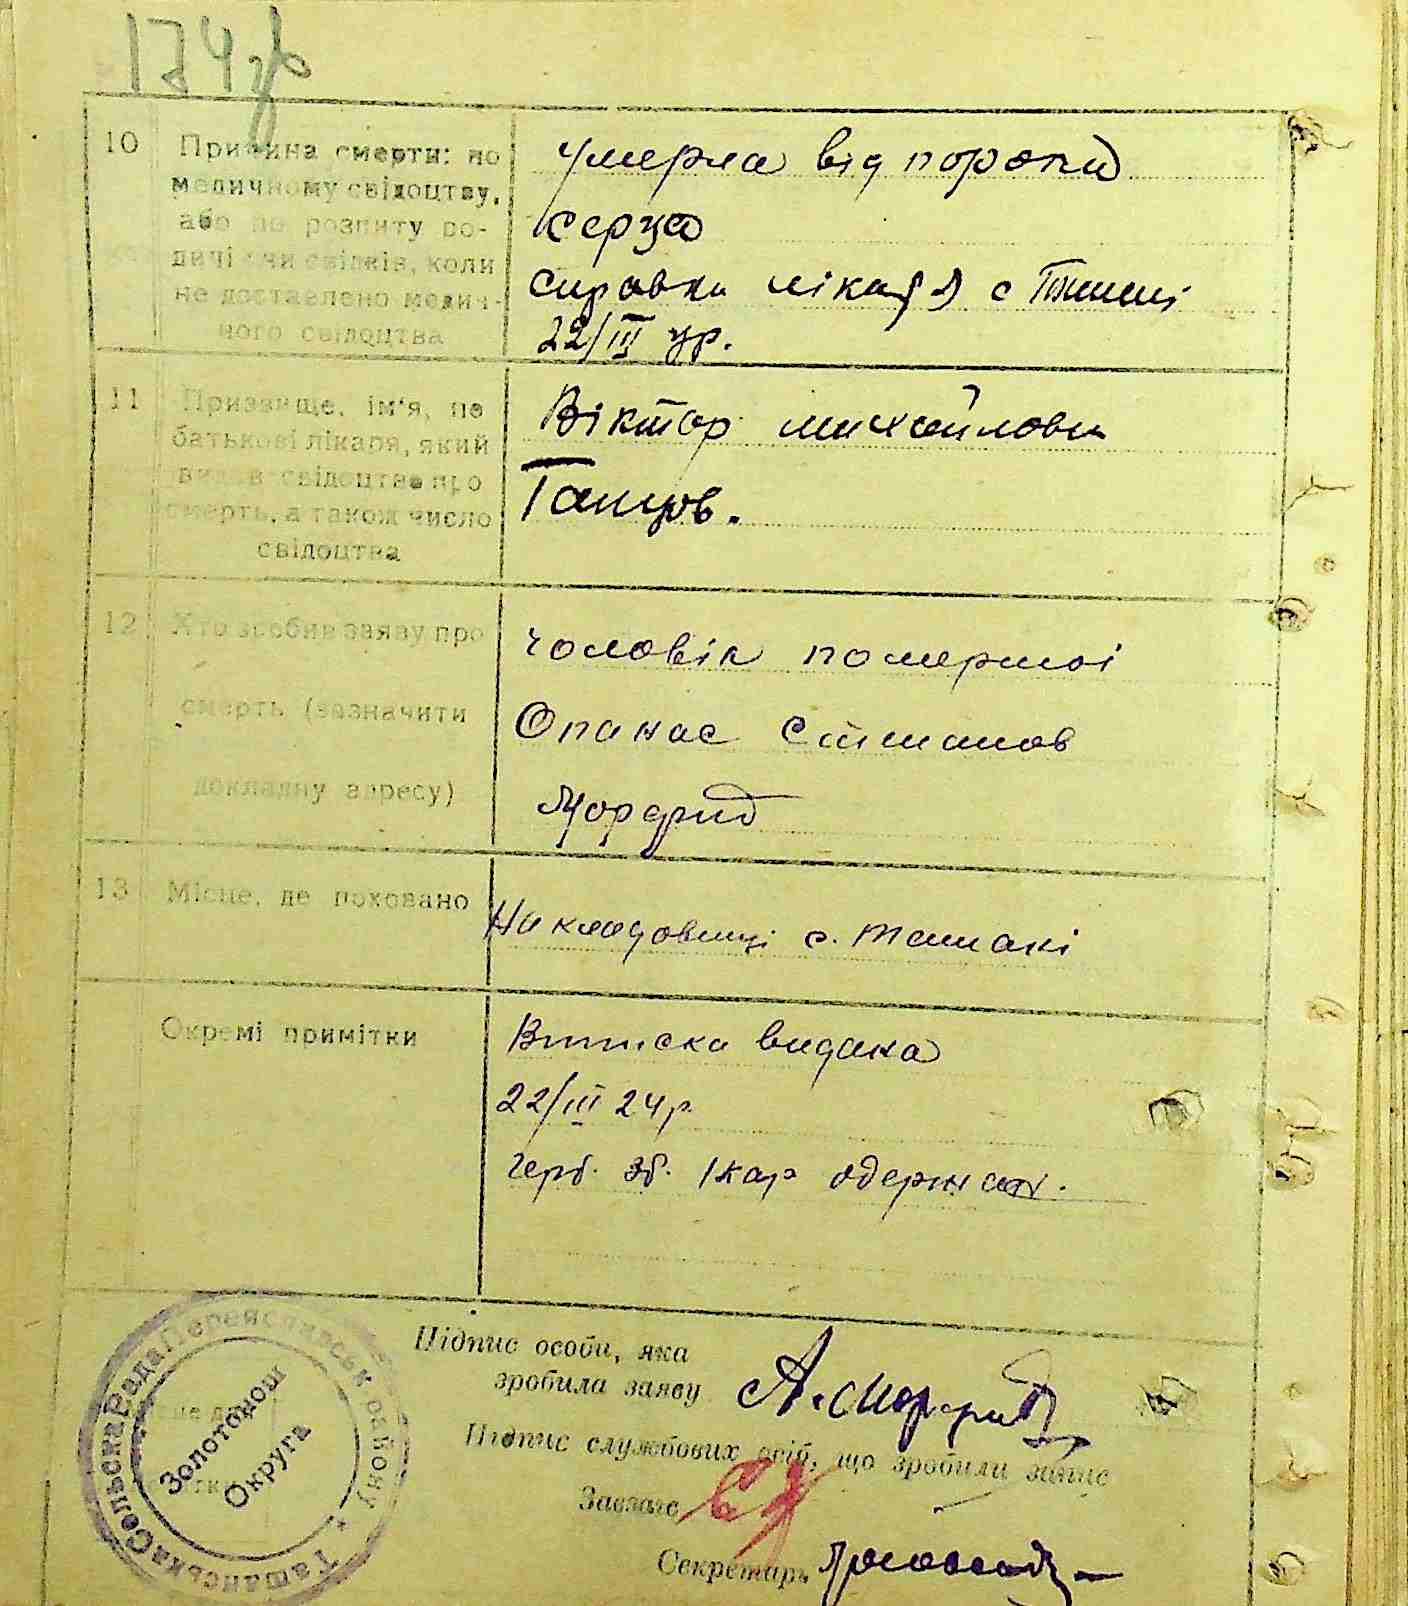 174зв
10 Причина смерти: по
медичному свідоцтву,
або по розпиту ро-
дичі чи свідків, коли
не доставлено медич-
ного свідоцтва
умерла від порока
серця
справка лікаря с
22/III ц.р.
11 Призвище, ім'я, по
батькові лікаря, який
видав свідоцтво про
смерть, а також число
свідоцтва
Віктор михайлови
Ганцов.
12 Хто зробив заяву про
смерть (зазначити
докладну адресу)
чоловік помершої
Опанас
13 Місце, де поховано
На кладовищі с. Ташані
Окремі примітки
Виписка видана
22/III 24 р.
герб. зб. 1 кар одержан.
Підпис особи, яка
зробила заяву
Підпис службових осіб, що зробили запис
Завзагс
Секретарь
Ташанська Сельська Рада Переяславськ району *
Золотонош
Округа